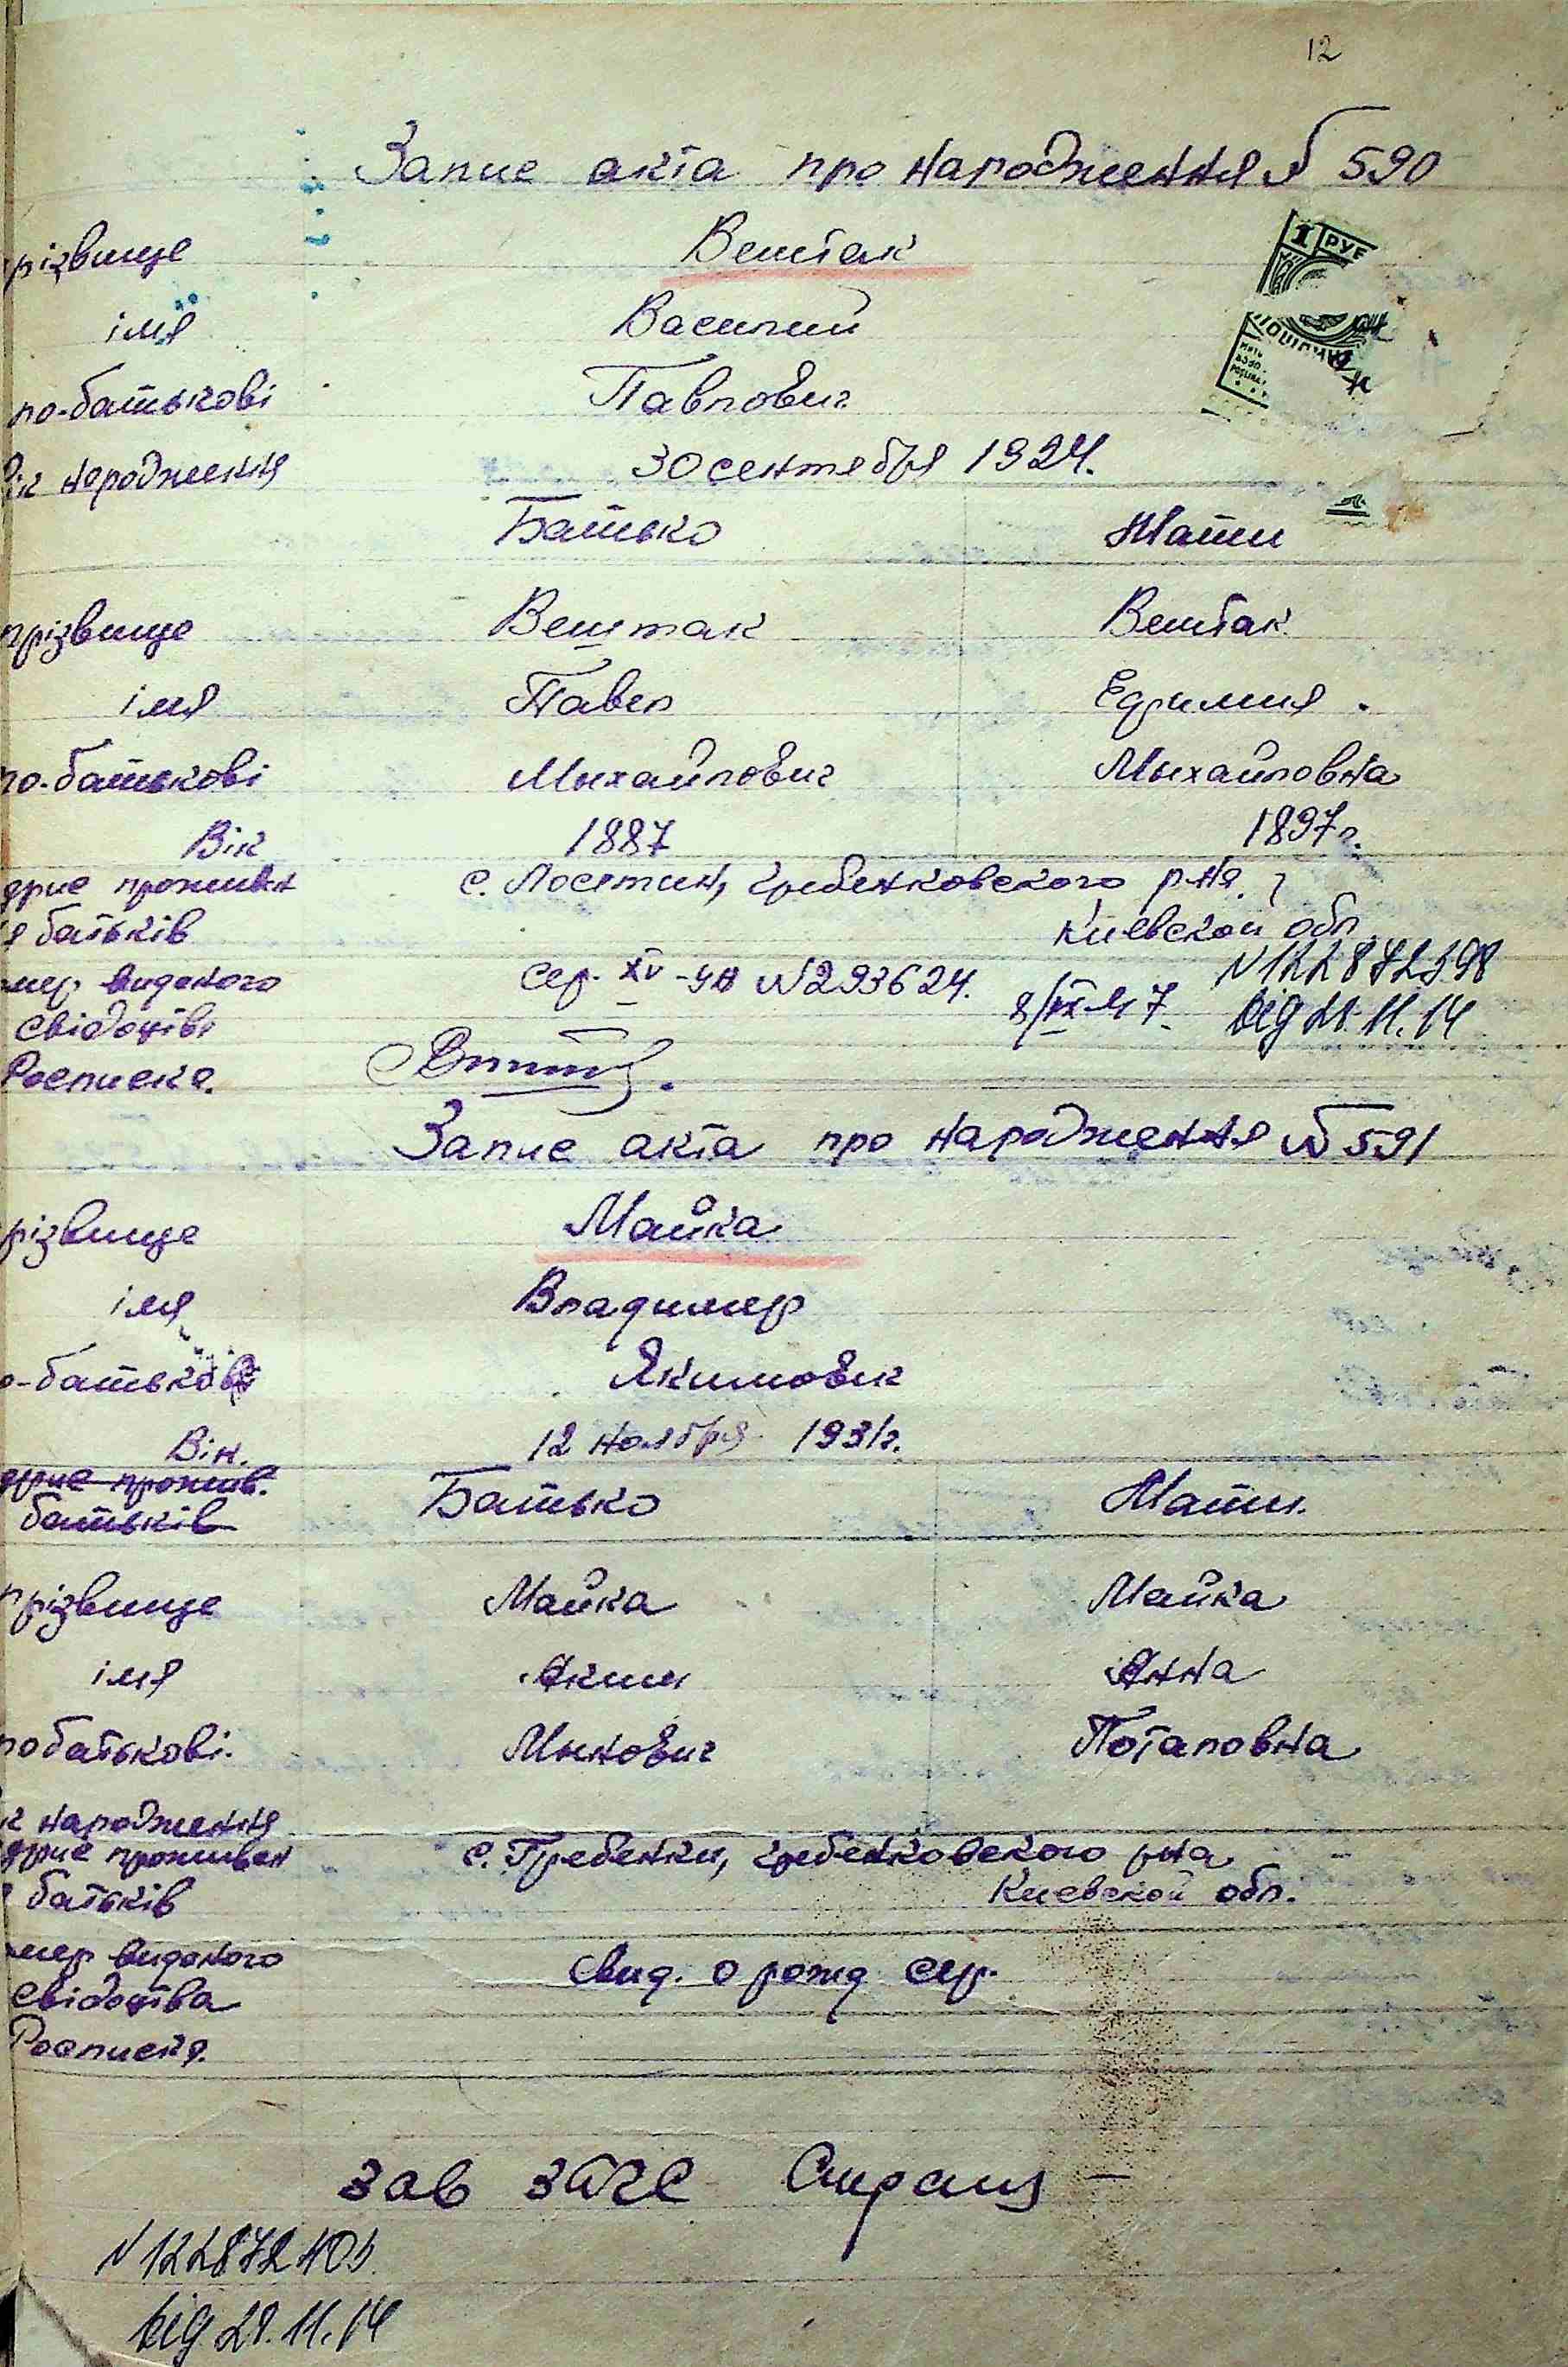 12
Запис акта про народження № 590
різвище Вештак
імя Василий
по-батькові Павлович
Рік народження 30 сентября 1924.
1 РУБ
Батько Мати
прізвище Вештак Вештак
імя Павел Ефимия.
по-батькові Михайлович Михайловна
Вік 1887 1897г.
адрис прожиан с. Лосятин, Гребенковского р-на,
я батьків Киевской обл.
мер виданого Сер. XV-ЧА №293624. 8/IX-47. №122872398
свідоцтв від 28.11.14
Росписка.
Запис акта про народження № 591
різвище Майка
імя Владимир
о-батькові Якимович
Вік. 12 ноября 1931г.
адрис прожив.
батьків Батько Мати.
прізвище Майка Майка
імя Аким Анна
по батькові. Минович Потаповна
к народження
адрис прожиВан с. Гребенки, Гребенковского р-на
я батьків Киевской обл.
мер виданого Свид. о рожд сер.
свідоцтва
Росписка.
Зав ЗАГС
від 28.11.14